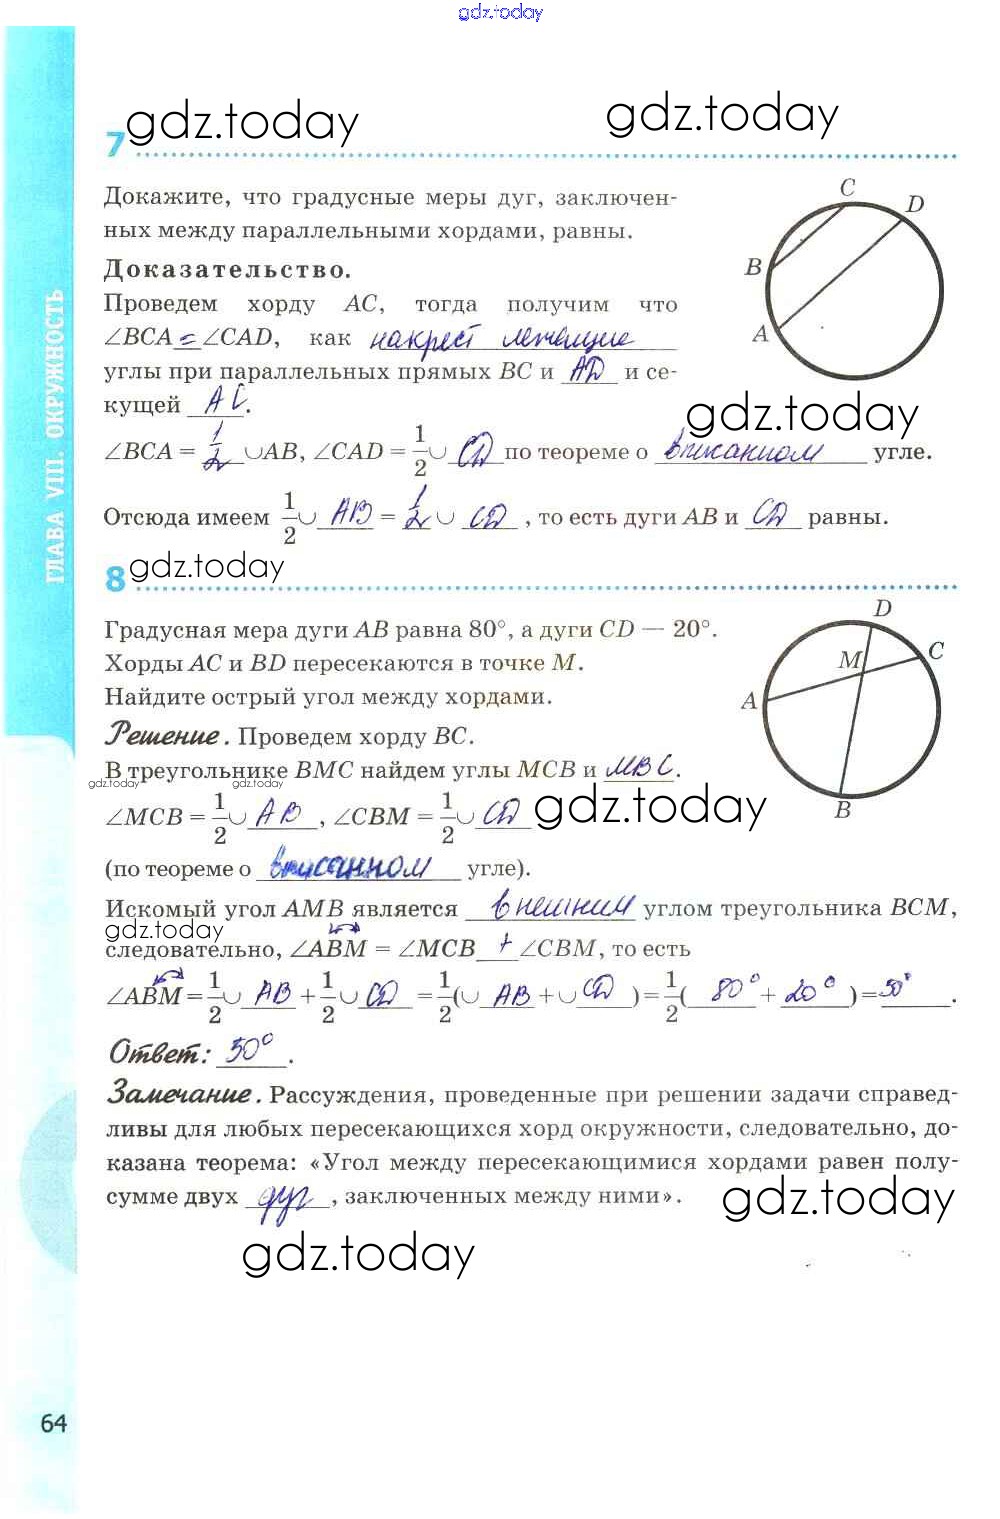 gdz.today
ГЛАВА VIII. ОКРУЖНОСТЬ
gdz.today
gdz.today
7
Докажите, что градусные меры дуг, заключен-
ных между параллельными хордами, равны.
Доказательство.
Проведем хорду AC, тогда получим что
∠BCA = ∠CAD, как накрест лежащие
углы при параллельных прямых BC и AD и се-
кущей AC.
C
D
B
A
gdz.today
∠BCA = 1/2 ∪AB, ∠CAD = 1/2 ∪ CD по теореме о вписанном угле.
Отсюда имеем 1/2 ∪ AB = 1/2 ∪ CD , то есть дуги AB и CD равны.
8
gdz.today
Градусная мера дуги AB равна 80°, а дуги CD — 20°.
Хорды AC и BD пересекаются в точке M.
Найдите острый угол между хордами.
Решение. Проведем хорду BC.
В треугольнике BMC найдем углы MCB и MBC.
gdz.today
gdz.today
D
C
M
A
B
∠MCB = 1/2 ∪ AB, ∠CBM = 1/2 ∪ CD
gdz.today
(по теореме о вписанном угле).
Искомый угол AMB является внешним углом треугольника BCM,
gdz.today
следовательно, ∠ABM = ∠MCB + ∠CBM, то есть
∠ABM = 1/2 ∪ AB + 1/2 ∪ CD = 1/2 (∪ AB + ∪ CD) = 1/2 ( 80° + 20° ) = 50° .
Ответ: 50°.
Замечание. Рассуждения, проведенные при решении задачи справед-
ливы для любых пересекающихся хорд окружности, следовательно, до-
казана теорема: «Угол между пересекающимися хордами равен полу-
сумме двух дуг , заключенных между ними».
gdz.today
gdz.today
64